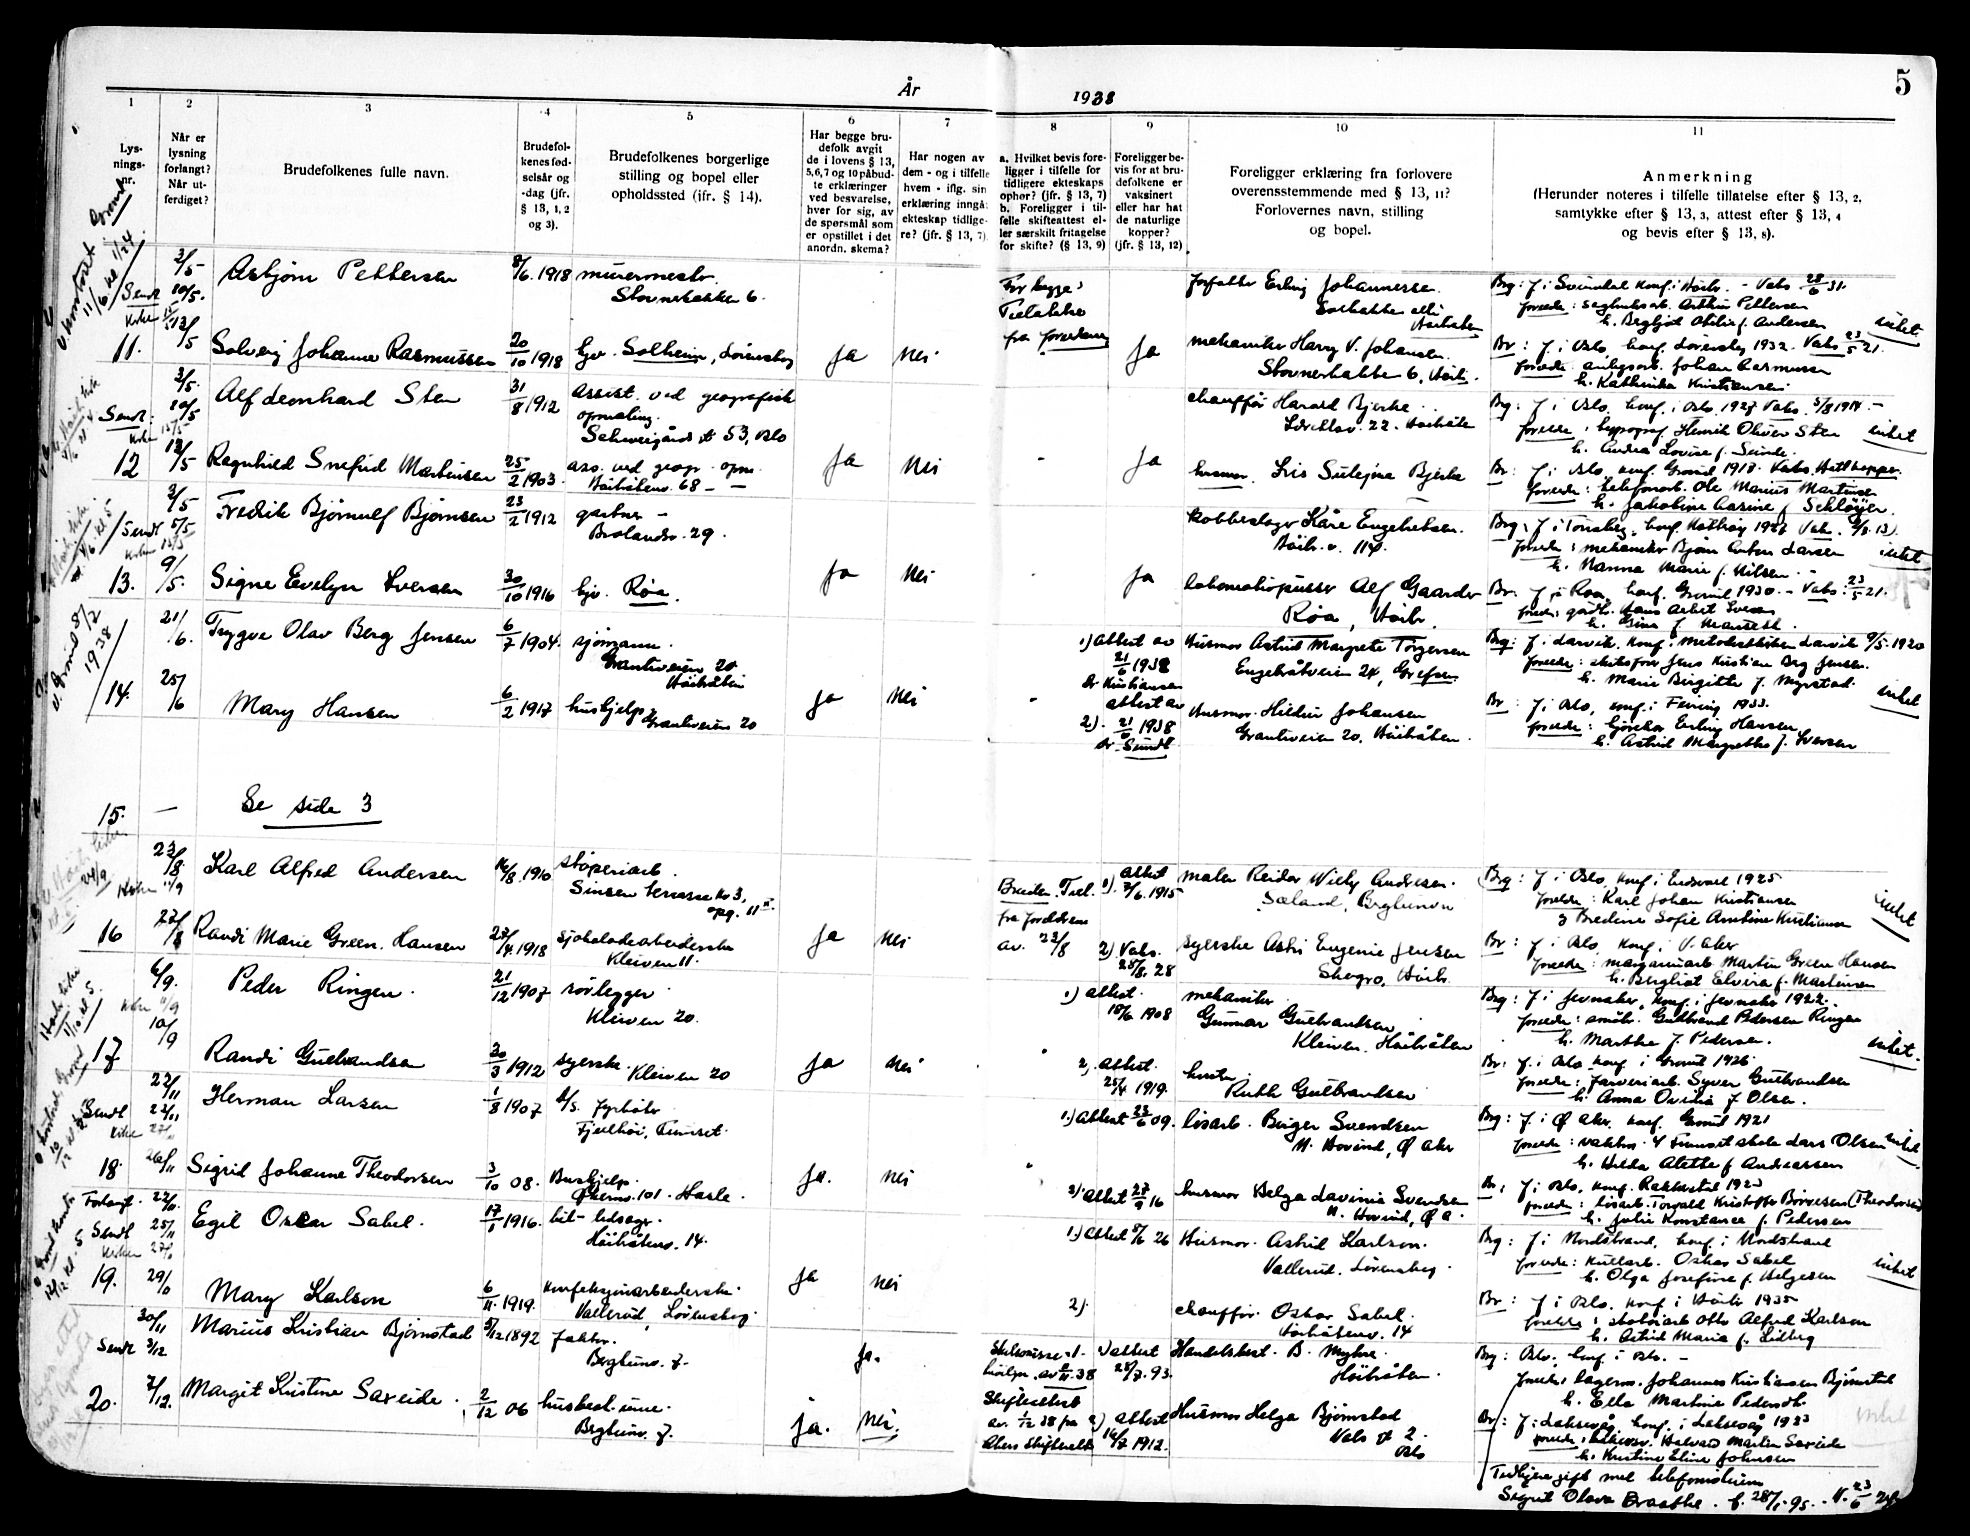 År
1938
5
1
2
3
4
5
6
7
8
9
10
11
Lys-
nings-
nr.
Når er
lysning
forlangt?
Når ut-
ferdiget?
Brudefolkenes fulle navn.
Brudefol-
kenes fød-
selsår og
-dag (jfr.
§ 13, 1, 2
og 3).
Brudefolkenes borgerlige
stilling og bopel eller
opholdssted (ifr. § 14).
Har begge bru-
defolk avgit
de i lovens § 13,
5,6,7 og 10 påbud-
te erklæringer
ved besvarelse,
hver for sig, av
de spørsmål som
er opstillet i det
anordn. skema?
Har nogen av
dem - og i tilfelle
hvem - iflg. sin
erklæring inngå:
ekteskap tidlige-
re? (jfr. § 13, 7)
a. Hvilket bevis fore-
ligger i tilfelle for
tidligere ekteskaps
ophør? (jfr. § 13, 7)
b. Foreligger i til-
felle skifteattest el-
ler særskilt fritagelse
for skifte? (§ 13, 9)
Foreligger be-
vis for at bru-
defolkene er
vaksinert
eller har hat
de naturlige
kopper?
(jfr. § 13, 12)
Foreligger erklæring fra forlovere
overensstemmende med § 13, 11?
Forlovernes navn, stilling
og bopel.
Anmerkning
(Herunder noteres i tilfelle tillatelse efter § 13, 2,
samtykke efter § 13, 3, attest efter § 13, 4
og bevis efter § 13, 8).
3/5- Asbjørn Pettersen 8/6. 1918 murermester
Sendt 10/5. Stovnerbakken 6.
For begge:
Tillatelse
fra foreldrene
Forfatter Erling Johannessen
Brg: f. i Svindal konf. i Høib. - Vaks 28/6 31.
forelde: sagbruksarb. Arthur Pettersen
h. Bergljot Otilie f. Andersen
intet
11. Solveig Johanne Rasmussen 20/10 1918 hjv. Solheim, Lørenskog ja nei ja
mekaniker Harry V. Johansen
Stovnerbakken 6, Høib.
Br: f. i Oslo, konf. Lørenskog 1932. Vaks 23/5 21.
forelde: anlegsarb. Johan Rasmussen
h. Kathinka Kristiansen
3/5. Alf Leonhard Sten 31/8 1912 assist. ved geografisk
Sendt. 10/5 opmaling.
Schweigårds gt 53, Oslo
chauffør Harald Bjerke
Brg: f. i Oslo, konf. i Oslo 1927 Vaks. 5/8 1914 -
forelde: typograf Henrik Oliver Sten
h. Andrea Lovise f. Seinde.
intet
12 Ragnhild Snefrid Martinsen 25/2 1903. ass. ved geogr. opm.
Høibråtenv. 68 - -
ja nei - ja
husmor. Iris Sulejma Bjerke
Br: f. i Oslo, konf. Grorud 1918. Vaks. Hatt kopper.
forelde: telefonarb. Ole Marius Martinsen
h. Jakobine Carine f. Schløyer.
3/5 Fredrik Bjørnulf Bjørnsen 23/2 1912 gartner -
Sendt 5/5 Brolandsv. 29.
kobberslager Kåre Engebretsen.
Høib.v. 114.
forelde: mekaniker Bjørn Anton Larsen
h. Nanna Marie f. Nilsen.
intet
13. 9/5. Signe Evelyn Iversen 30/10 1916 hjv. Røa. ja nei - ja
lokomotivpusser Alf Gaarder
Røa, Høib.
Br. f. i Røa, konf. Grorud 1930. - Vaks: 23/5 21.
21/6. Trygve Olav Berg Jensen 6/7 1904. sjømann.
Grantuveien 20
Høibråten
1) attest av
21/6 1938
dr Kristiansen
Husmor Astrid Margrete Torgersen
Engebråtveien 24, Grefsen
Brg: f. Larvik, konf. i metodistkirken Larvik 9/5. 1920
forelde: skibsfører Jens Kristian Berg Jensen.
h. Marie Birgitte f. Myrstad.
intet
14. 25/6 Mary Hansen 6/2 1917 hushjelp
Grantuveien 20
ja nei -
attest av
2). 21/6 1938
dr Sundt
Husmor. Hildur Johansen
Grantuveien 20, Høibråten.
Br: f. i Oslo, konf. i Feiring 1933.
forelde: kjørekar Erling Hansen
h. Astrid Margrethe f. Iversen
15. - Se side 3
23/8 Karl Alfred Andersen 16/8. 1910 støperiarb.
Sinsen terrasse No 3,
opg. 11
Bruden Till.
fra foreldrene
av. 23/8
1). attest
7/6. 1915
maler Reidar Willy Andresen.
Sæland, Berglunnv.
Brg: f. i Oslo, konf. i Eidsvoll 1925
forelde: Karl Johan Kristiansen
og Bredine Sofie Amtine Kristiansen
intet
16 27/8 Randi Marie Green. Hansen 27/4. 1918 sjokoladearbeiderske
Kleiven 11.
ja nei
2) Vaks.
25/8. 28
syerske Astri Eugenie Jensen
Skogro, Høib.
Br: f. i Oslo, konf. i V. Aker
forelde: margarinarb. Martin Green Hansen
h. Bergliot Elvira f. Martinsen
6/9. Peder Ringen. 21/12 1907 rørlegger
Kirken 11/9 Kleiven 20.
1) attest.
15/6 1908
mekaniker
Gunnar Gulbrandsen
Kleiven, Høibråten
Brg: f. i Jevnaker, konf. i Jevnaker 1922.
forelde: småbr. Gulbrand Pedersen Ringen
h. Marthe f. Pedersen.
intet.
17 10/9 Randi Gulbrandsen 30/3 1912 syerske. Kleiven 20 ja nei
2) attest.
25/4 1919.
Ruth Gulbrandsen
Br: f. i Oslo konf. i Grorud 1926.
forelde: farveriarb. Syver Gulbrandsen
h. Anna Ovidia f. Olsen.
22/11 Herman Larsen 1/8 1907 d/s. fyrbøter
Sendt 22/11 Fjellhøi, Furuset.
1.) attest 23/6 09.
lisarb. Birger Svendsen
N. Hovind, Ø. Aker
Brg: f. i Ø. Aker, konf. Grorud 1921
forelde: vaktm. v/ Furuset skole Lars Olsen
h. Hilda Alette f. Andreassen
intet
18. 26/11 Sigrid Johanne Theodorsen 3/10 08. Hushjelp.
Økernv. 101. Hasle.
ja. nei
2) attest 27/9 16
husmor Helga Lavinia Svendsen
N. Hovind, Ø. A.
Br, f. i Oslo, konf. Rakkestad 1923
forelde: lisarb. Torvald Kristoffer Børresen (Theodorsen)
h. Julie Konstance f. Pedersen
Forlangt. Egil Oskar Sabel. 17/1 1916. bil-ledsager.
Sendt 25/11 Høibråtenv. 14.
1.) attest 8/6 26
Husmor. Astrid Karlson.
Vallerud. Lørenskog.
Brg: f. i Nordstrand, konf. i Nordstrand
forelde: kullarb. Oskar Sabel
h. Olga Josefine f. Helgesen
intet
19. Mary Karlson 6/11. 1919. konfeksjonsarbeiderske.
Vallerud, Lørenskog.
ja nei
2).
chauffør. Oskar Sabel.
Høibråtenv. 14
Br: f. i Oslo. konf. i Høib 1935
forelde: skotøiarb. Otto Alfred Karlson
h. Astrid Maria f. Lilberg
30/11 Marius Kristian Bjørnstad 5/12 1892 faktor.
Sendt 3/12 Berglunv. 7.
ja.
1) attest
28/7. 93.
Handelsbest. B. Myhre.
Høibråten.
Brg: Oslo, konf. i Oslo. -
forelde: lagerm. Johannes Kristiansen Bjørnstad
h. Ella Martine Pedersdt.
20. 7/12. Margit Kristine Saxeide. 2/12 06 husbest.inne.
Berglunv. 7.
ja. nei.
Skifteattest
av. 1/12 38 fra
Akers skifterett
2) attest
16/7 1912.
Husmor Helga Bjørnstad
Vals gt 2.
Oslo
Br: f. i Laksevåg, konf. i Laksevåg 1923
h. Kristine Eline Johnsen
Tidligere gift med telefonistinne
Sigrid Olava Braathe. f. 28/1. 95.